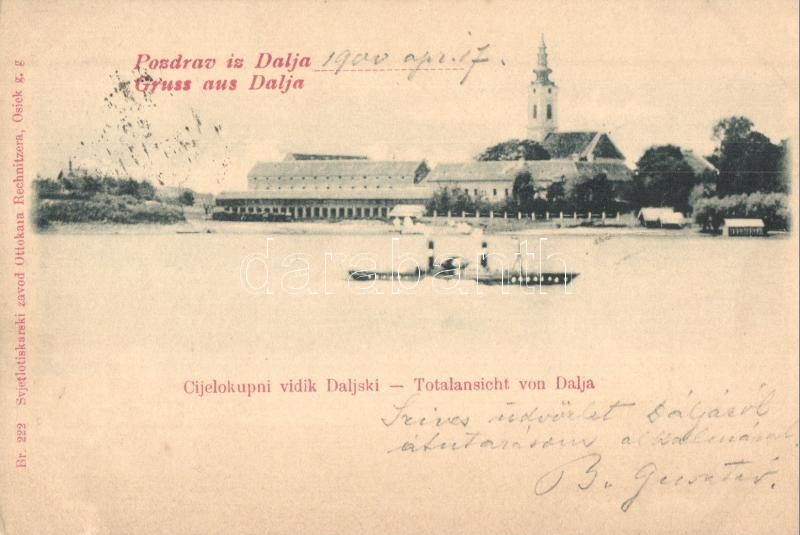 Pozdrav iz Dalja 1900 apr. 17.
Gruss aus Dalja
darabanth
Cijelokupni vidik Daljski — Totalansicht von Dalja
Szives üdvözlet Dáljáról
átutazásom alkalmával
B. Gusztáv
Br. 222 Svjetlotiskarski zavod Ottokara Rechnitzera, Osiek g. g